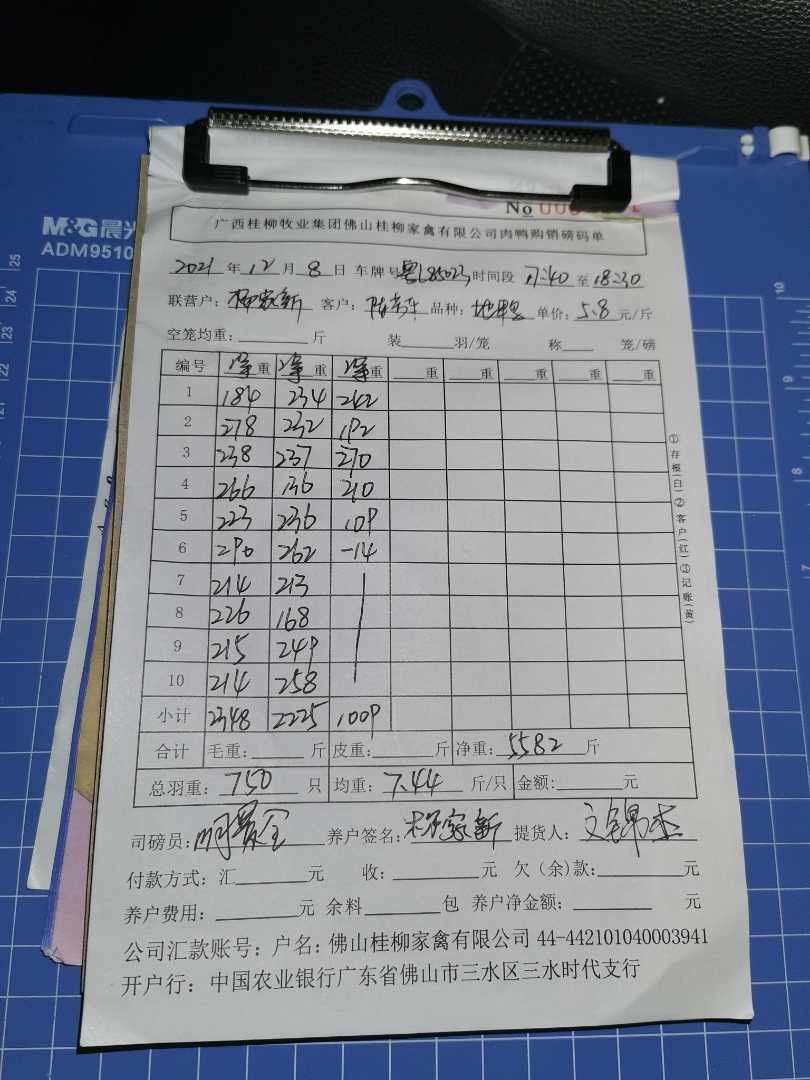 M&G晨光
ADM9510
No 000
广西桂柳牧业集团佛山桂柳家禽有限公司肉鸭购销磅码单
2021年12月8日 车牌号粤L85023时间段17:40至18:30
联营户:杨家新 客户: 品种: 单价:5.8元/斤
空笼均重:____斤 装____羽/笼 称____笼/磅
编号 净重 净重 净重 __重 __重 __重 __重 __重
1 184 234 242
2 278 232 192
3 238 237 270
4 266 136 210
5 223 236 109
6 290 262 -14
7 214 213
8 226 168
9 215 249
10 214 258
小计 2348 2225 1009
合计 毛重:____斤 皮重:____斤 净重:5582斤
总羽重:750只 均重:7.44斤/只 金额:____元
司磅员: 养户签名:杨家新 提货人:文锦杰
付款方式:汇____元 收:____元 欠(余)款:____元
养户费用:____元 余料____包 养户净金额:____元
公司汇款账号:户名:佛山桂柳家禽有限公司 44-442101040003941
开户行:中国农业银行广东省佛山市三水区三水时代支行
①存根(白)②客户(红)③记账(黄)
25
24
23
22
21
10
9
8
7